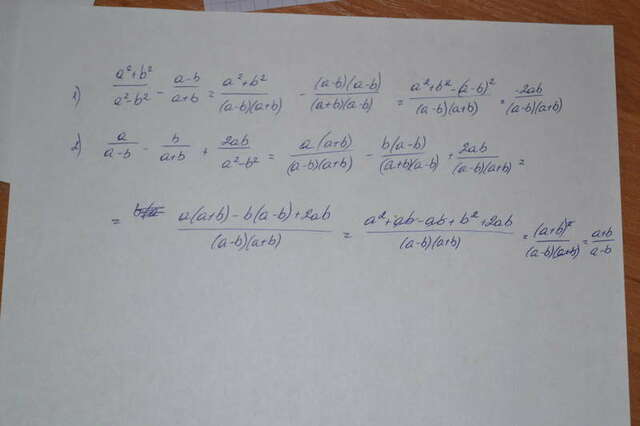 1) (a²+b²)/(a²-b²) - (a-b)/(a+b) = (a²+b²)/((a-b)(a+b)) - ((a-b)(a-b))/((a+b)(a-b)) = (a²+b²-(a-b)²)/((a-b)(a+b)) = (-2ab)/((a-b)(a+b))
2) a/(a-b) - b/(a+b) + 2ab/(a²-b²) = (a(a+b))/((a-b)(a+b)) - (b(a-b))/((a+b)(a-b)) + 2ab/((a-b)(a+b)) =
= (a(a+b)-b(a-b)+2ab)/((a-b)(a+b)) = (a²+ab-ab+b²+2ab)/((a-b)(a+b)) = (a+b)²/((a-b)(a+b)) = (a+b)/(a-b)